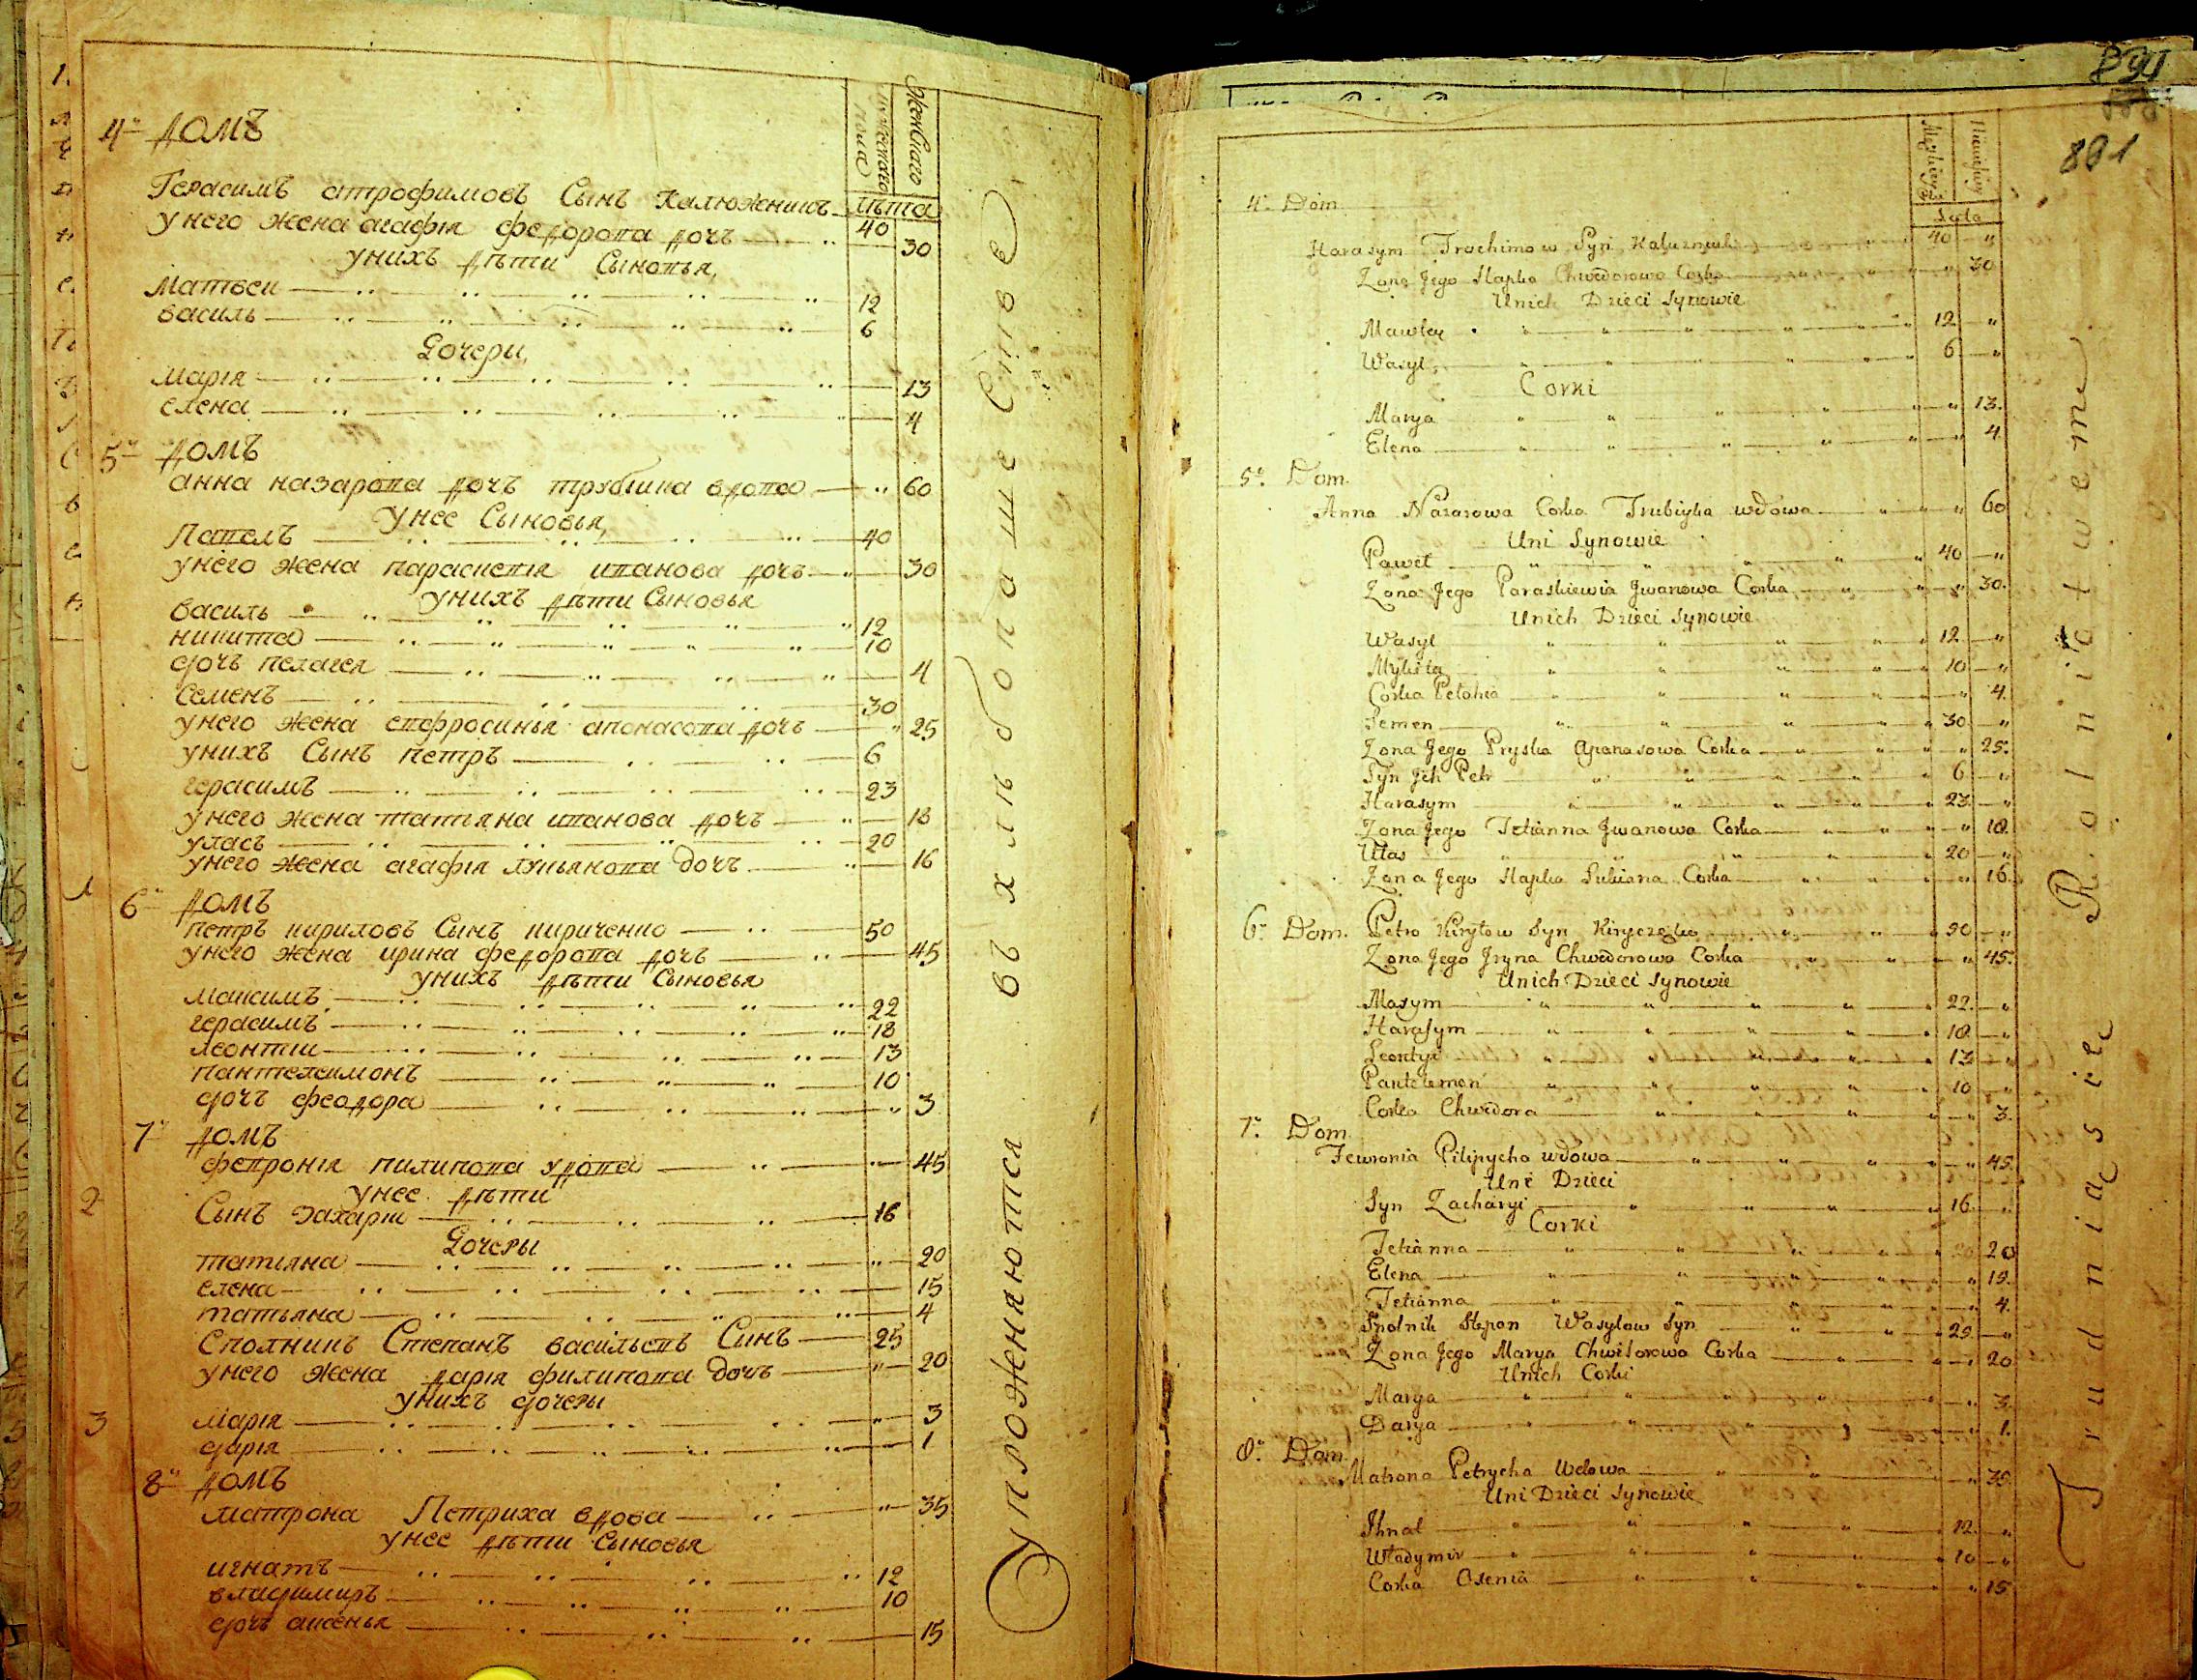 Мужескаго пола
Женскаго
лѣта
4й домъ
Герасимъ атрофимовъ Сынъ Калюжникъ 40
унего жена агафія федорова дочъ 30
унихъ дѣти Сыновья,
матвеи 12
василь 6
Дочеры,
марія 13
елена 4
5й домъ
анна назарова дочъ трубѣика вдова 60
унее Сыновья,
Павелъ 40
унего жена параскевія иванова дочъ 30
унихъ дѣти Сыновья
василь 12
никита 10
дочъ пелагея 4
Семенъ 30
унего жена евфросинья апонасова дочъ 25
унихъ Сынъ петръ 6
герасимъ 23
унего жена татьяна иванова дочъ 18
уласъ 20
унего жена агафія лукьянова дочъ 16
6й домъ
петръ кириловъ Сынъ кириченко 50
унего жена ирина федорова дочъ 45
унихъ дѣти Сыновья
максимъ 22
герасимъ 18
леонтии 13
пантелеимонъ 10
дочъ феодора 3
7й домъ
февронія пилипова удова 45
унее дѣти
Сынъ захарии 16
Дочеры
татьяна 20
елена 15
татьяна 4
Сполникъ Степанъ васильевъ Синъ 25
унего жена дарія филипова дочъ 20
унихъ дочеры
марія 3
дарія 1
8й домъ
матрона Петриха вдова 35
унее дѣти Сыновья
игнатъ 12
владимиръ 10
дочъ аксенья 15
Упрожняются въ хлѣбопашествѣ
801
Lata
4º Dom
Harasym Trochimow Syn Kaluznik 40 "
Zona Jego Hapka Chwedorowa Corka " 30
Unich Dzieci Synowie
Mawtey 12 "
Wasyl 6 "
Corki
Marya " 13.
Elena " 4
5º Dom.
Anna Nazarowa Corka Trubiyka wdowa " 60
Uni Synowie
Paweł 40 "
Zona Jego Paraskiewia Jwanowa Corka " 30.
Unich Dzieci Synowie
Wasyl 12 "
Mykita 10 "
Corka Pelahia " 4.
Semen 30 "
Zona Jego Pryska Apanasowa Corka " 25.
Syn Jch Petr 6 "
Harasym 23 "
Zona Jego Tetianna Jwanowa Corka " 18.
Ułas 20 "
Zona Jego Hapka Lukiana Corka " 16.
6º Dom. Petro Kiryłow Syn Kiryczenko 50 "
Zona Jego Jryna Chwedorowa Corka " 45.
Unich Dzieci Synowie
Maxym 22. "
Harasym 18 "
Leontyi 13 "
Pantelemon 10 "
Corka Chwedora " 3.
7º Dom.
Fewronia Pilipycha wdowa " 45.
Uni Dzieci
Syn Zacharyi 16 "
Corki
Tetianna 20
Elena " 15.
Tetianna " 4.
Spolnik Stepan Wasylow Syn 25. "
Zona Jego Marya Chwilorowa Corka " 20
Unich Corki
Marya " 3.
Darya " 1.
8º Dom.
Matrona Petrycha Wdowa " 35.
Uni Dzieci Synowie
Jhnat 12. "
Władymir 10 "
Corka Oxenia " 15
Trudniąsię Rolnictwem